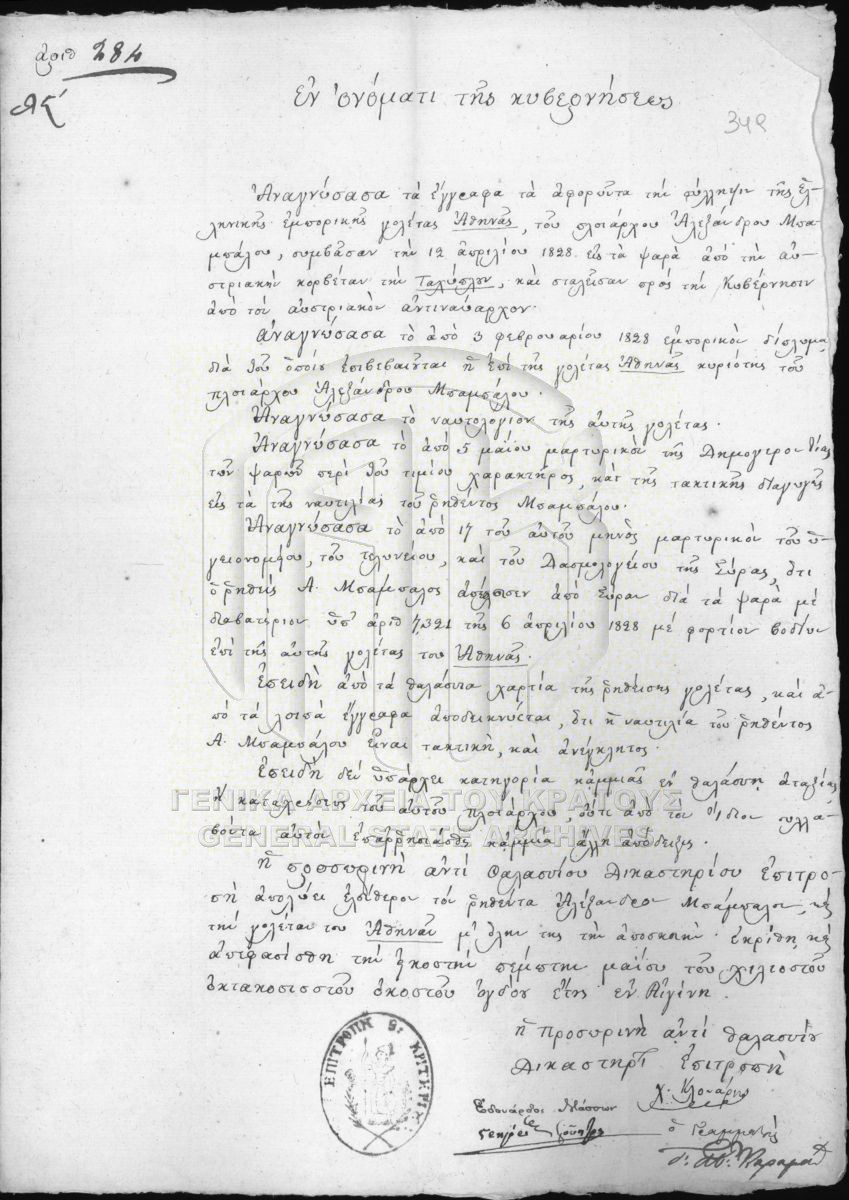 ἀριθ 284
Ἐν ὀνόματι τῆς κυβερνήσεως
Ἀναγνώσασα τὰ ἔγγραφα τὰ ἀφορῶντα τὴν σύλληψιν τῆς ἑλ-
ληνικῆς ἐμπορικῆς γολέτας Ἀθηνᾶς, τοῦ πλοιάρχου Ἀλεξάνδρου Μπα-
μπάλου, συμβᾶσαν τὴν 12 ἀπριλίου 1828 εἰς τὰ ψαρὰ ἀπὸ τὴν αὐ-
στριακὴν κορβέταν τὴν, καὶ σταλεῖσαν πρὸς τὴν Κυβέρνησιν
ἀπὸ τὸν αὐστριακὸν ἀντιναύαρχον.
ἀναγνώσασα τὸ ἀπὸ 3 φεβρουαρίου 1828 ἐμπορικὸν δίπλωμα,
διὰ τοῦ ὁποίου ἐπιβεβαιοῦται ἡ ἐπὶ τῆς γολέτας Ἀθηνᾶς κυριότης τοῦ
πλοιάρχου Ἀλεξάνδρου Μπαμπάλου.
Ἀναγνώσασα τὸ ναυτολόγιον τῆς αὐτῆς γολέτας.
Ἀναγνώσασα τὸ ἀπὸ 5 μαΐου μαρτυρικὸν τῆς Δημογεροντίας
τῶν ψαρῶν περὶ τοῦ τιμίου χαρακτῆρος, καὶ τῆς τακτικῆς διαγωγῆς
εἰς τὰ τῆς ναυτιλίας τοῦ ῥηθέντος Μπαμπάλου.
Ἀναγνώσασα τὸ ἀπὸ 17 τοῦ αὐτοῦ μηνὸς μαρτυρικὸν τοῦ ὑ-
γειονομείου, τοῦ τελωνείου, καὶ τοῦ Δασμολογείου τῆς Σύρας, ὅτι
ὁ ῥηθεὶς Α. Μπάμπαλος ἀπέπλευσεν ἀπὸ Σύραν διὰ τὰ ψαρὰ μὲ
διαβατήριον ὑπ' ἀριθ 7,321 τῆς 6 ἀπριλίου 1828 μὲ φορτίον βοδίων
ἐπὶ τῆς αὐτῆς γολέτας του Ἀθηνᾶς.
Ἐπειδὴ ἀπὸ τὰ θαλάσσια χαρτία τῆς ῥηθείσης γολέτας, καὶ ἀ-
πὸ τὰ λοιπὰ ἔγγραφα ἀποδεικνύεται, ὅτι ἡ ναυτιλία τοῦ ῥηθέντος
Α. Μπαμπάλου εἶναι τακτική, καὶ ἀνέγκλητος.
Ἐπειδὴ δὲν ὑπάρχει κατηγορία κᾀμμιᾶς ἐν θαλάσσῃ ἀταξίας
ἢ καταχρήσεως τοῦ αὐτοῦ πλοιάρχου, οὔτε ἀπὸ τὸν ἴδιον συλλα-
βόντα αὐτὸν ἐπαῤῥησιάσθη κᾀμμία ἄλλη ἀπόδειξις.
ἡ προσωρινὴ ἀντὶ θαλασσίου Δικαστηρίου Ἐπιτρο-
πὴ ἀπολύει ἐλεύθερον τὸν ῥηθέντα Ἀλέξανδρον Μπάμπαλον, καὶ
τὴν γολέταν του Ἀθηνᾶν μ' ὅλην της τὴν ἀποσκευήν. ἐκρίθη, καὶ
ἀπεφασίσθη τὴν εἰκοστὴν πέμπτην μαΐου τοῦ χιλιοστοῦ
ὀκτακοσιοστοῦ εἰκοστοῦ ὀγδόου ἔτους ἐν Αἰγίνῃ.
ἡ Προσωρινὴ ἀντὶ θαλασσίου
Δικαστηρί Ἐπιτροπὴ
Χ. Κλονάρης
Ἐδουάρδος Μάσσων
ὁ Γραμματεὺς
ΕΠΙΤΡΟΠΗ
ΓΕΝΙΚΑ ΑΡΧΕΙΑ ΤΟΥ ΚΡΑΤΟΥΣ
GENERAL STATE ARCHIVES